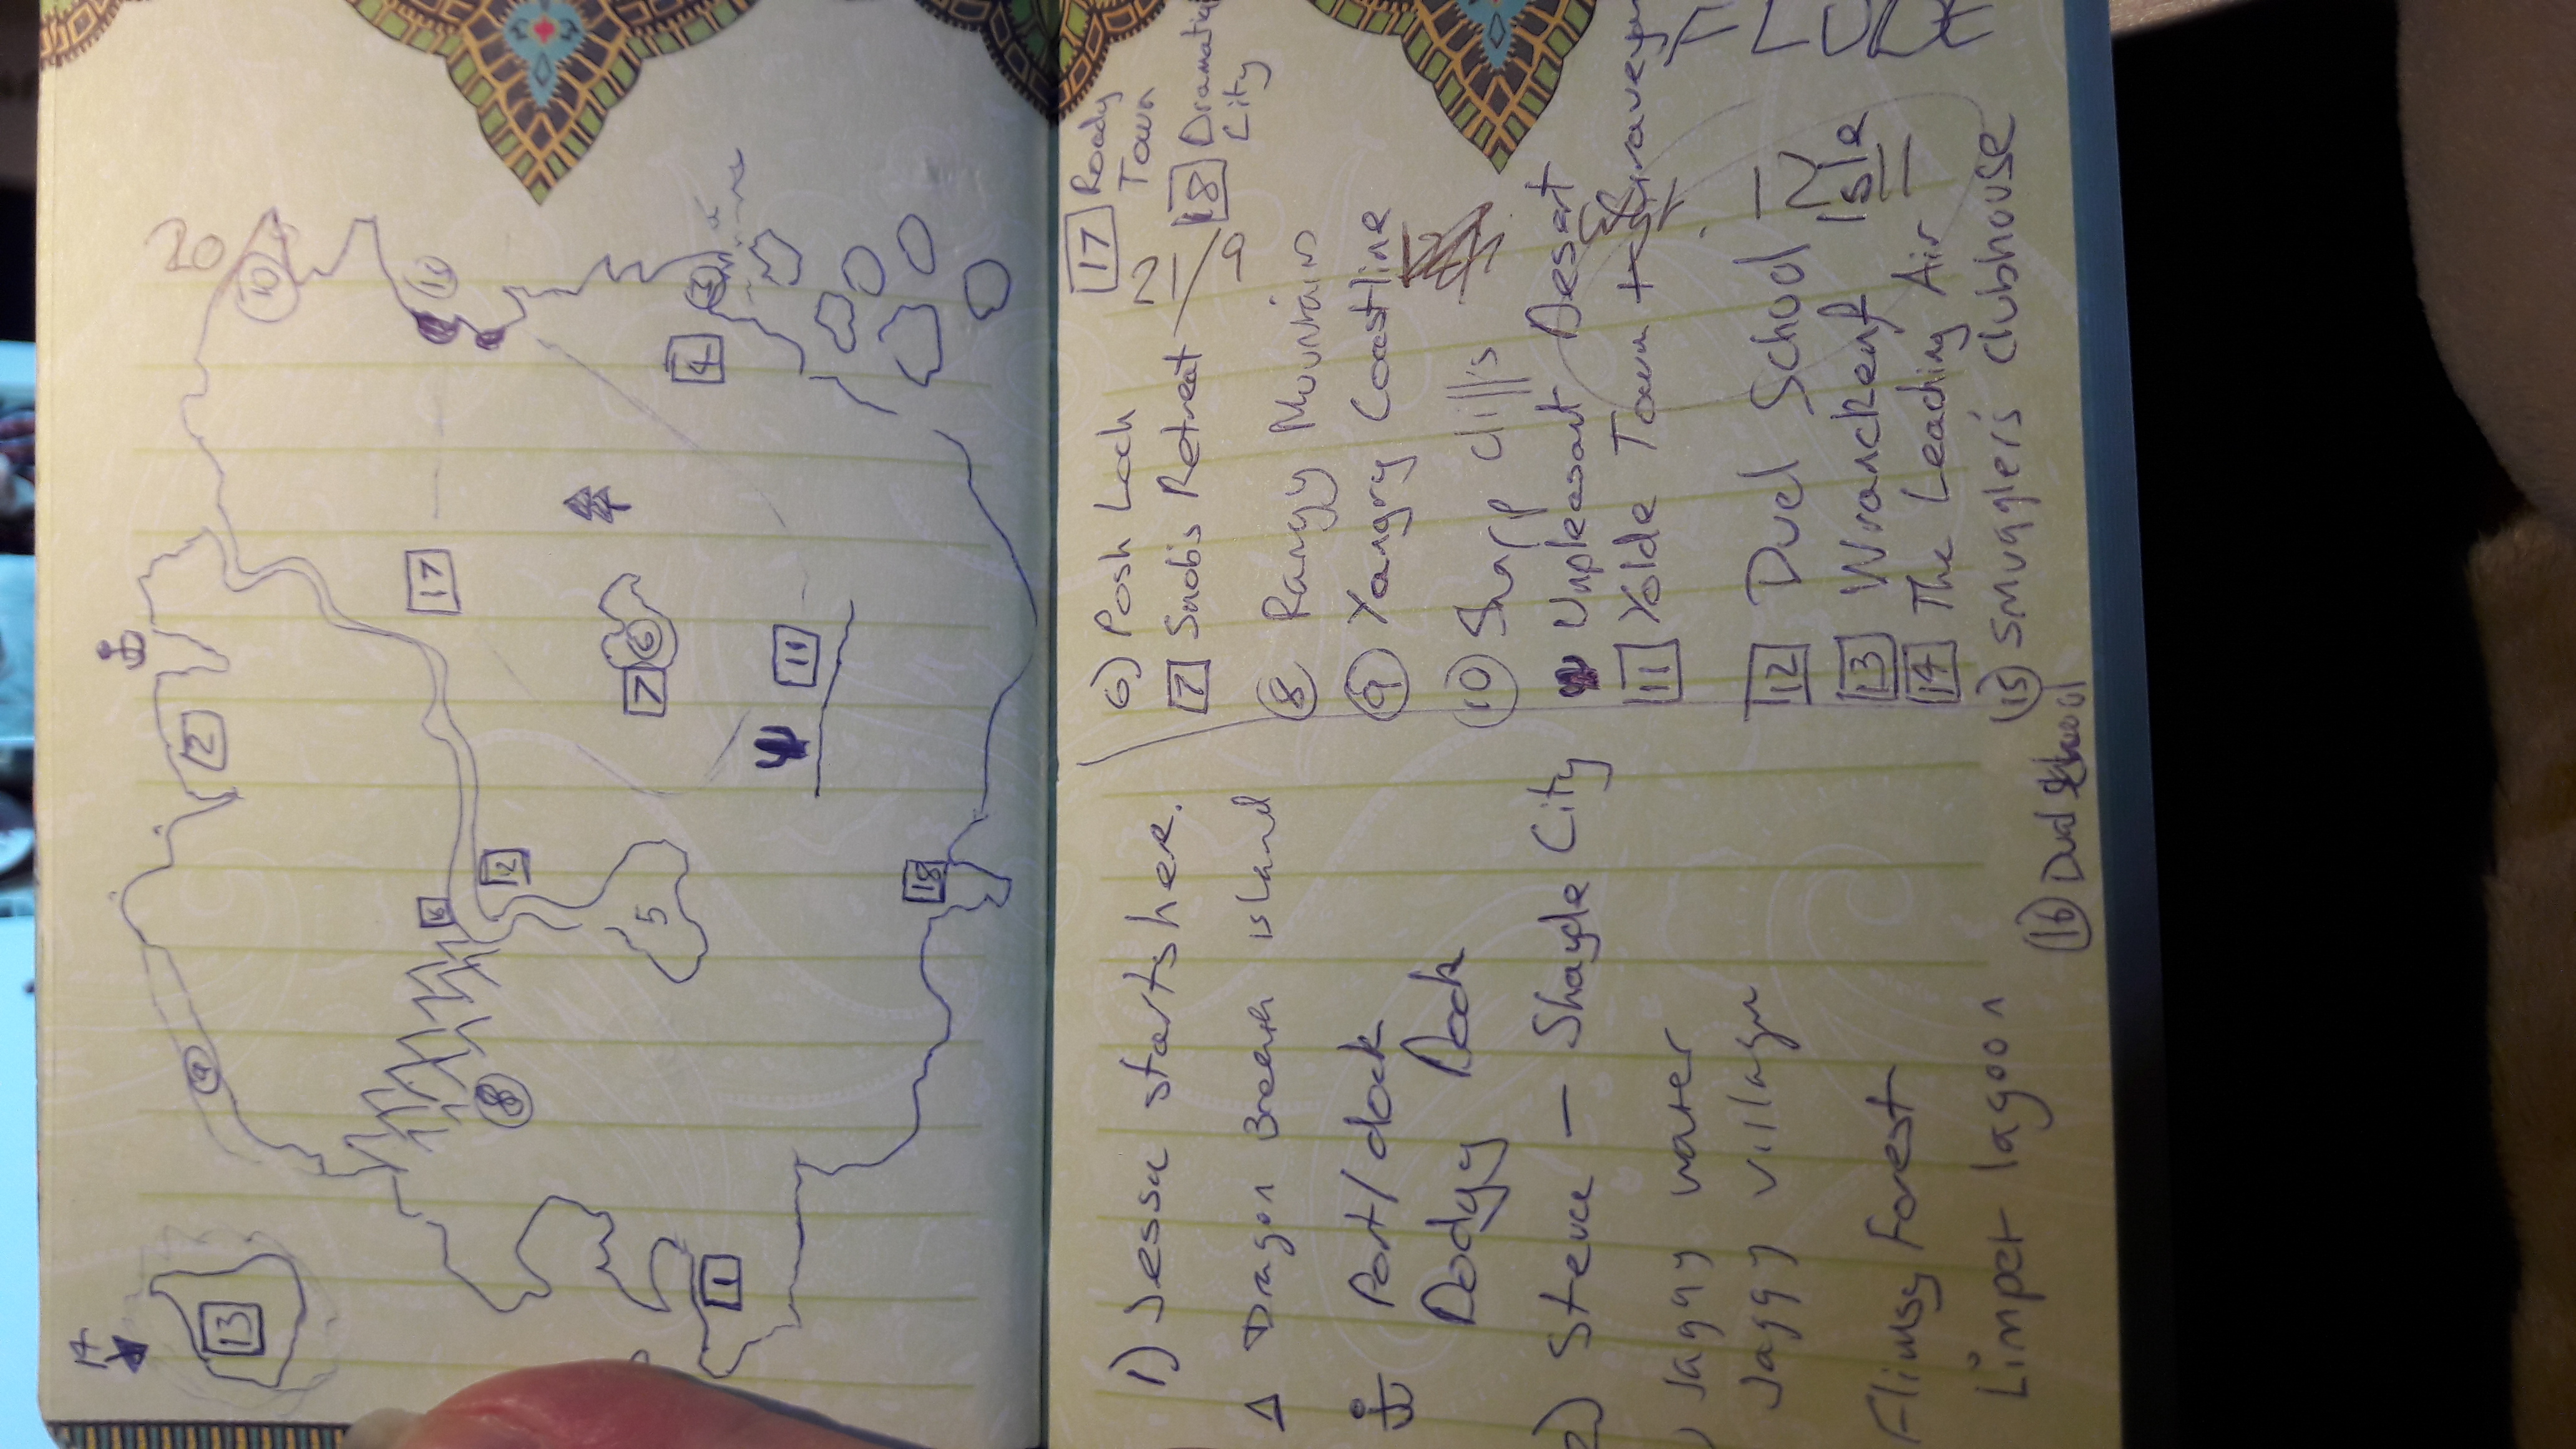 14
13
9
2
20
10
17
16
8
12
5
7 6
1
4 3
11
18
1) Jessa starts here.
Δ Dragon Breath island
Port/dock
Dodgy Dock
2) Steve — Shayde City
) Jaggy water
Jaggy village
Flimsy Forest
Limpet lagoon
16 Duel School
6) Posh Loch
7 Snobs Retreat
8 Rangy Mountains
9 Yangry Coastline
10 Sharp cliffs
Unpleasant Desert
11 Yolde Town + Graveyar
12 Duel School
13 Wranckenf Isle
14 The Leaching Air
15 Smuggler's clubhouse
17 Roady
Town
18 Dramatic
City
21/9